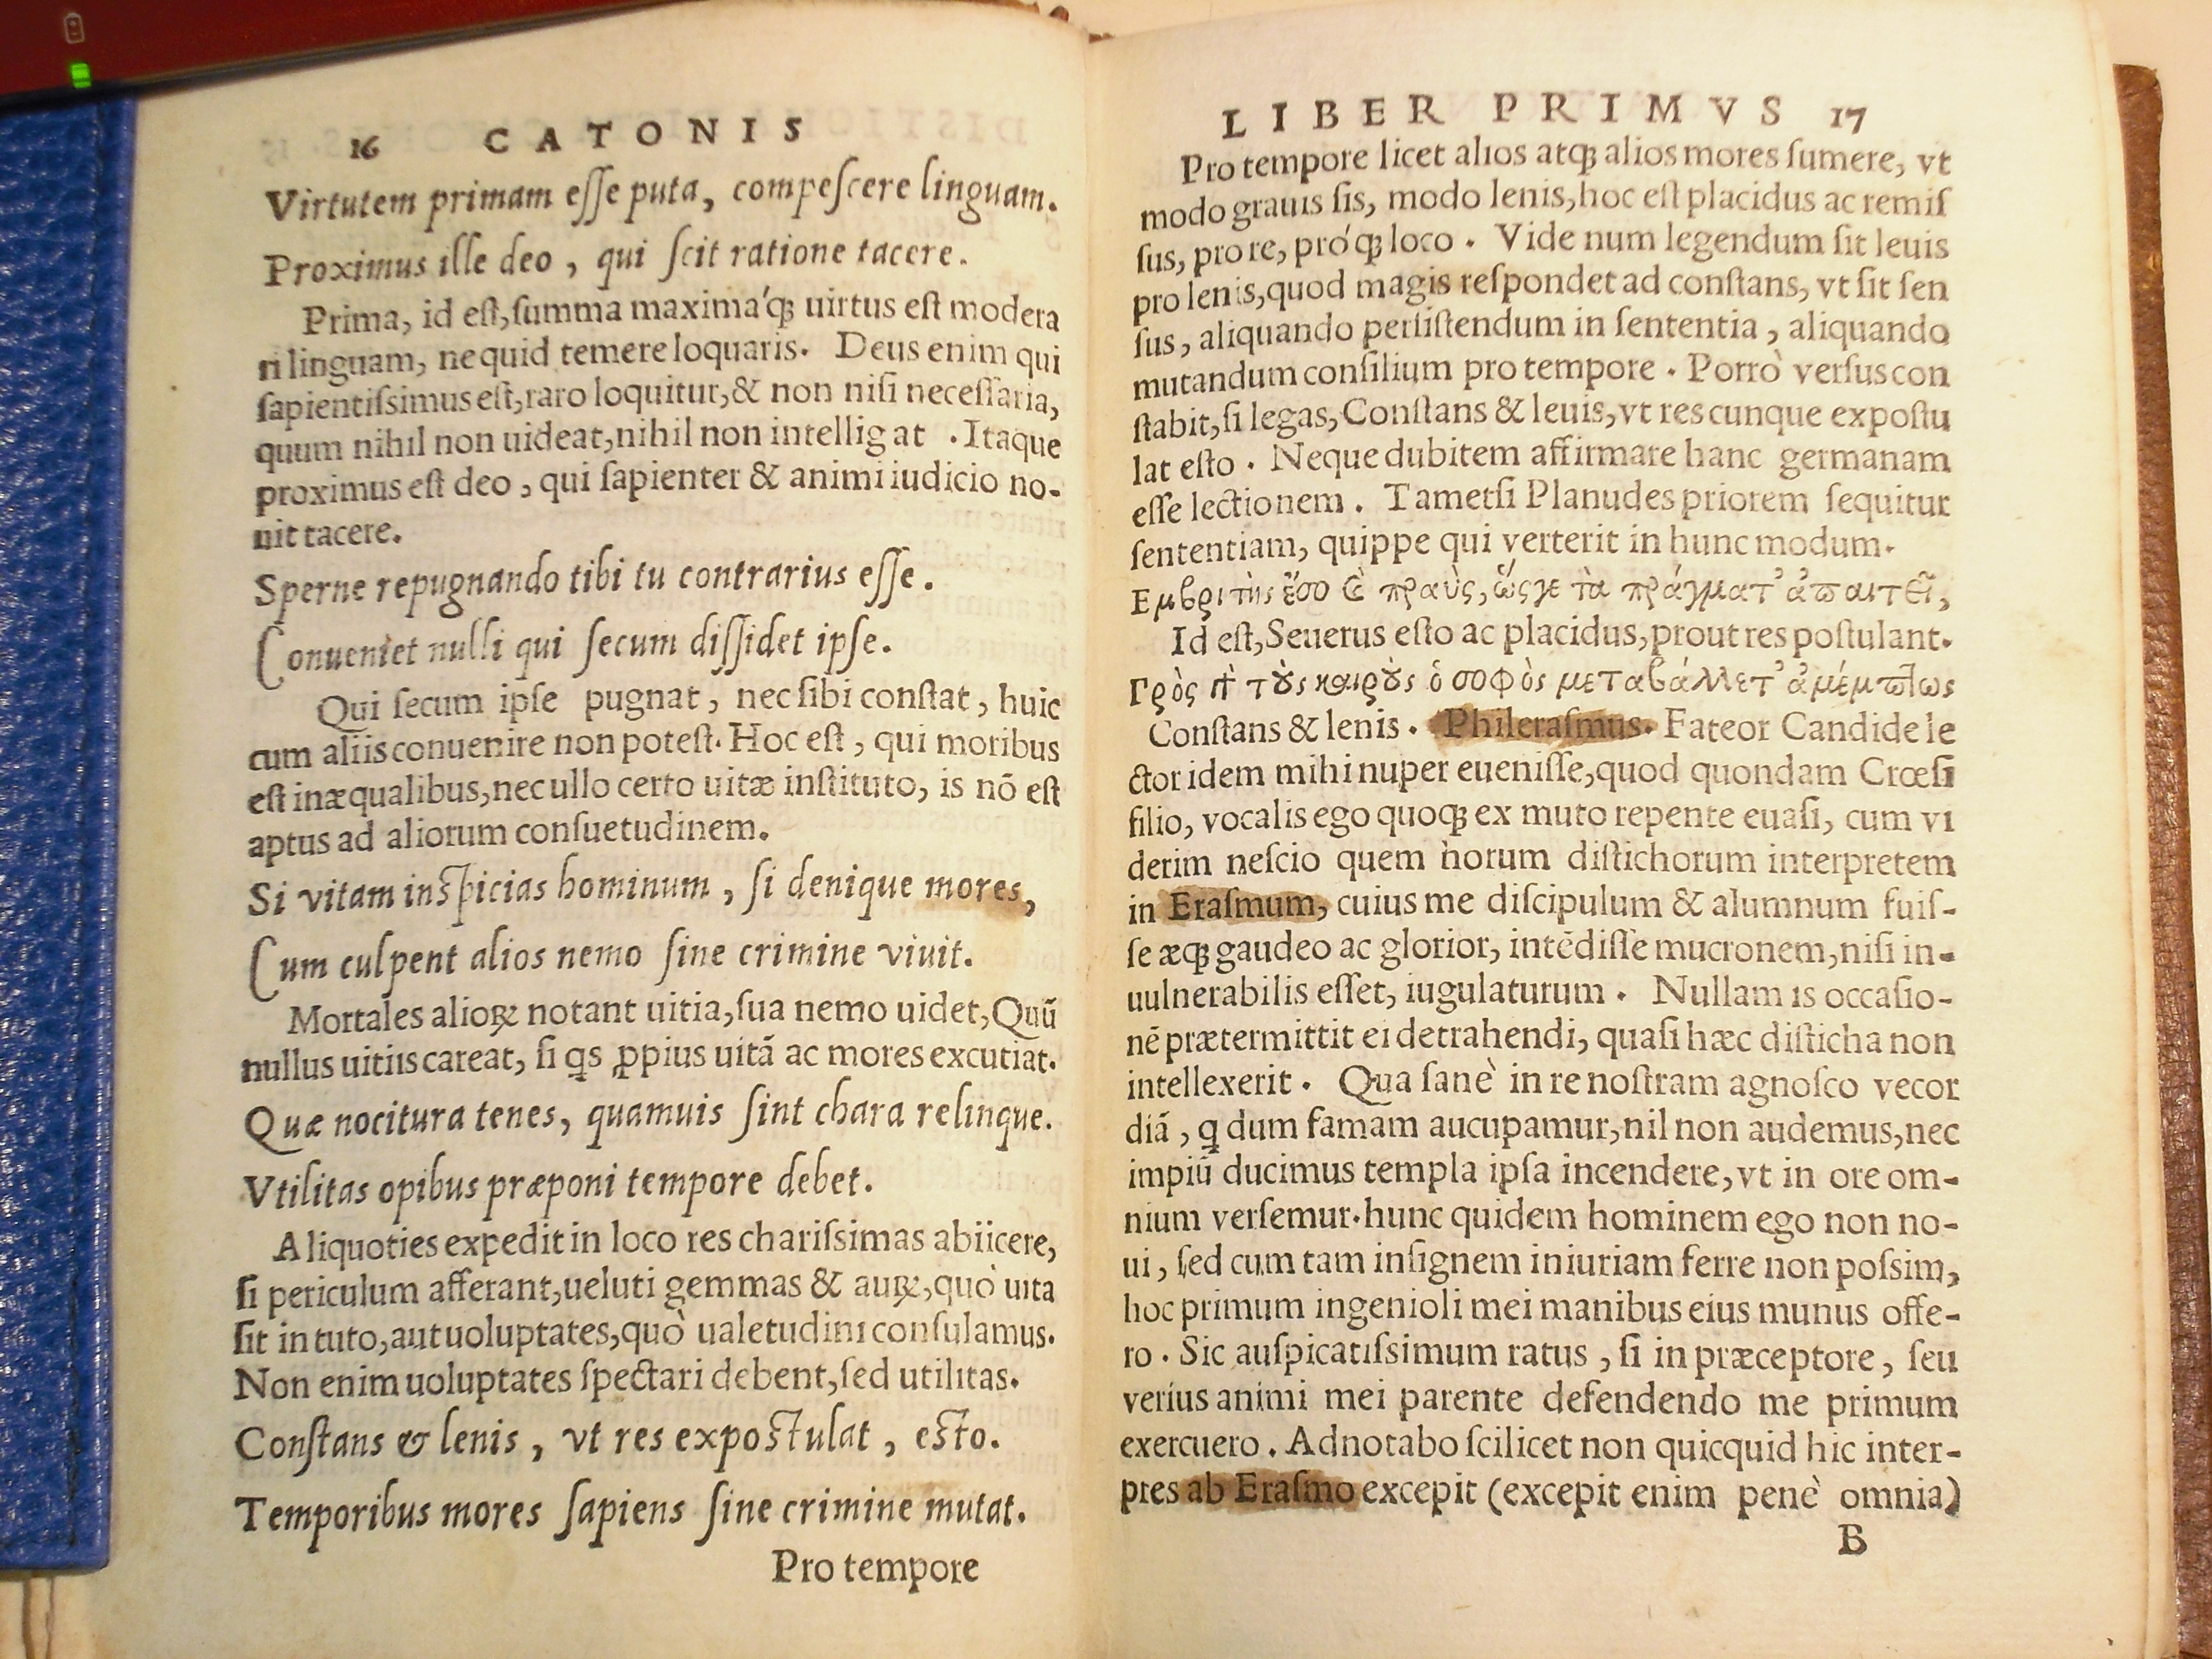 16 CATONIS
Virtutem primam eſſe puta, compeſcere linguam.
Proximus ille deo, qui ſcit ratione tacere.
Prima, id eſt, ſumma maxima'q; uirtus eſt modera
ri linguam, ne quid temere loquaris. Deus enim qui
ſapientiſsimus eſt, raro loquitur, & non niſi neceſſaria,
quum nihil non uideat, nihil non intelligat. Itaque
proximus eſt deo, qui ſapienter & animi iudicio no-
uit tacere.
Sperne repugnando tibi tu contrarius eſſe.
Conueniet nulli qui ſecum diſſidet ipſe.
Qui ſecum ipſe pugnat, nec ſibi conſtat, huic
cum aliis conuenire non poteſt. Hoc eſt, qui moribus
eſt inæqualibus, nec ullo certo uitæ inſtituto, is nō eſt
aptus ad aliorum conſuetudinem.
Si vitam inſpicias hominum, ſi denique mores,
Cum culpent alios nemo ſine crimine viuit.
Mortales alioꝝ notant uitia, ſua nemo uidet, Quū
nullus uitiis careat, ſi qs ꝓpius uitā ac mores excutiat.
Quæ nocitura tenes, quamuis ſint chara relinque.
Vtilitas opibus præponi tempore debet.
Aliquoties expedit in loco res chariſsimas abiicere,
ſi periculum afferant, ueluti gemmas & auꝝ, quò uita
ſit in tuto, aut uoluptates, quò ualetudini conſulamus.
Non enim uoluptates ſpectari debent, ſed utilitas.
Conſtans & lenis, vt res expoſtulat, eſto.
Temporibus mores ſapiens ſine crimine mutat.
Pro tempore
LIBER PRIMVS 17
Pro tempore licet alios atq; alios mores ſumere, vt
modo grauis ſis, modo lenis, hoc eſt placidus ac remiſ
ſus, pro re, pró'q; loco. Vide num legendum ſit leuis
pro lenis, quod magis reſpondet ad conſtans, vt ſit ſen
ſus, aliquando perſiſtendum in ſententia, aliquando
mutandum conſilium pro tempore. Porrò verſus con
ſtabit, ſi legas, Conſtans & leuis, vt res cunque expoſtu
lat eſto. Neque dubitem affirmare hanc germanam
eſſe lectionem. Tametſi Planudes priorem ſequitur
ſententiam, quippe qui verterit in hunc modum.
Εμβριτὴς ἔσο ϗ̀ πραὺς, ὥς γε τὰ πράγματ' ἀπαιτεῖ,
Id eſt, Seuerus eſto ac placidus, prout res poſtulant.
Γρὸς γὰ τοὺς καιροὺς ὁ σοφὸς μεταβάλλετ' ἀμέμπτως
Conſtans & lenis. Phileraſmus. Fateor Candide le
ctor idem mihi nuper eueniſſe, quod quondam Crœſi
filio, vocalis ego quoq; ex muto repente euaſi, cum vi
derim neſcio quem horum diſtichorum interpretem
in Eraſmum, cuius me diſcipulum & alumnum fuiſ-
ſe æq; gaudeo ac glorior, intēdiſſe mucronem, niſi in-
uulnerabilis eſſet, iugulaturum. Nullam is occaſio-
nē prætermittit ei detrahendi, quaſi hæc diſticha non
intellexerit. Qua ſanè in re noſtram agnoſco vecor
diā, q dum famam aucupamur, nil non audemus, nec
impiū ducimus templa ipſa incendere, vt in ore om-
nium verſemur. hunc quidem hominem ego non no-
ui, ſed cum tam inſignem iniuriam ferre non poſsim,
hoc primum ingenioli mei manibus eius munus offe-
ro. Sic auſpicatiſsimum ratus, ſi in præceptore, ſeu
veriús animi mei parente defendendo me primum
exercuero. Adnotabo ſcilicet non quicquid hic inter-
pres ab Eraſmo excepit (excepit enim penè omnia)
B